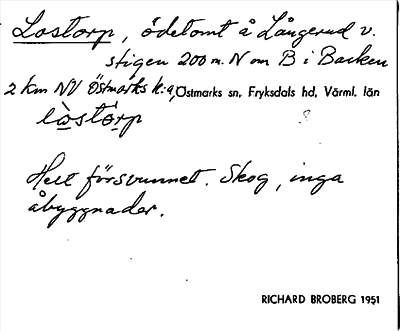 Lostorp, ödetomt å Långerud v.
stigen 200 m. N om B i Backen
2 km NV Östmarks k:a, Östmarks sn, Fryksdals hd, Värml. län
lòstórp
Helt försvunnet. Skog, inga
åbyggnader.
RICHARD BROBERG 1951